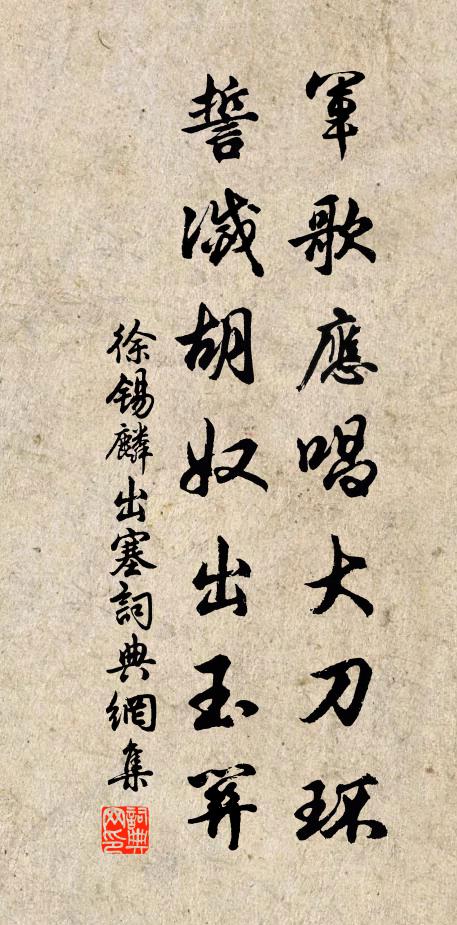 軍歌應唱大刀環
誓滅胡奴出玉關
徐錫麟出塞詞典網集
詞典网印